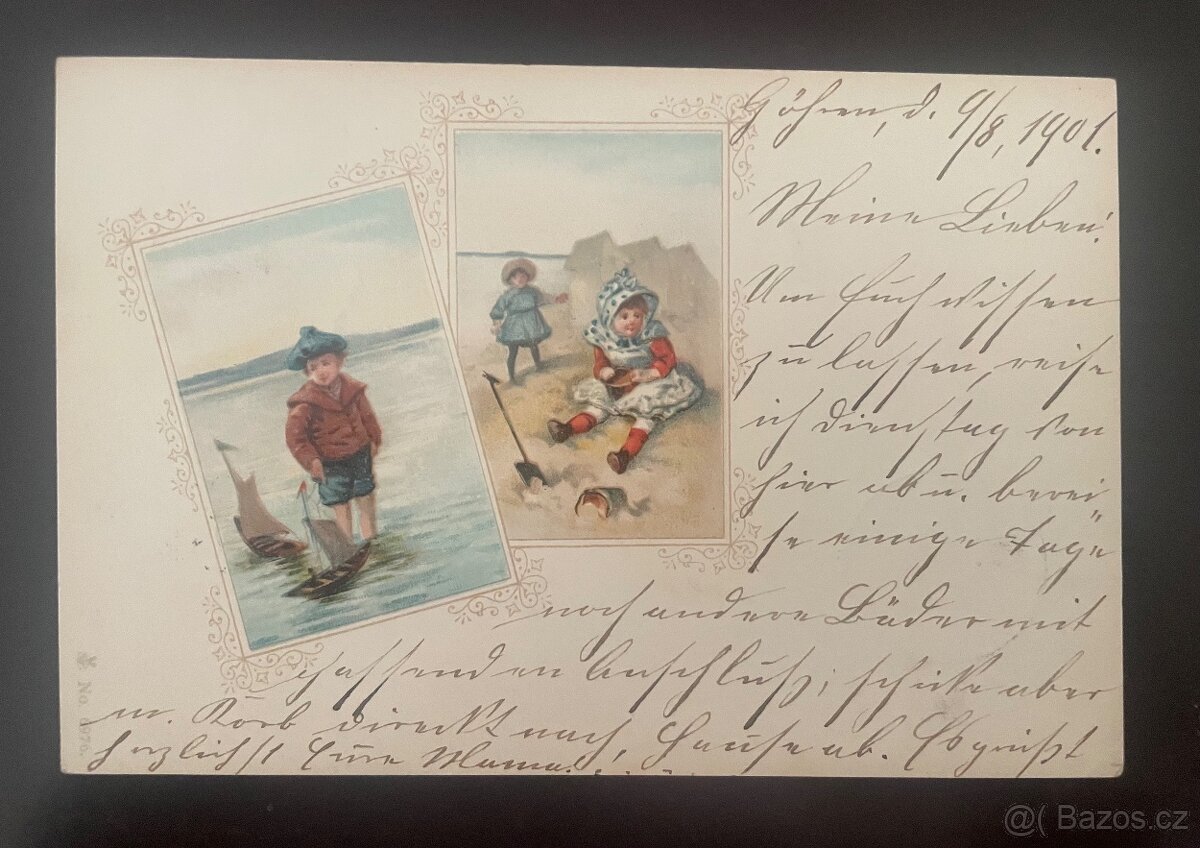 Göhren, d. 9/8, 1901.
Meine Lieben!
Um Euch wissen
zu lassen, reise
ich Dienstag von
hier ab u. berei-
se einige Tage
noch andere Bäder mit
passenden Anschluß; schicke aber
m. Korb direckt nach Hause ab. Es grüßt
herzlichst Eure Mama.
No.
@( Bazos.cz